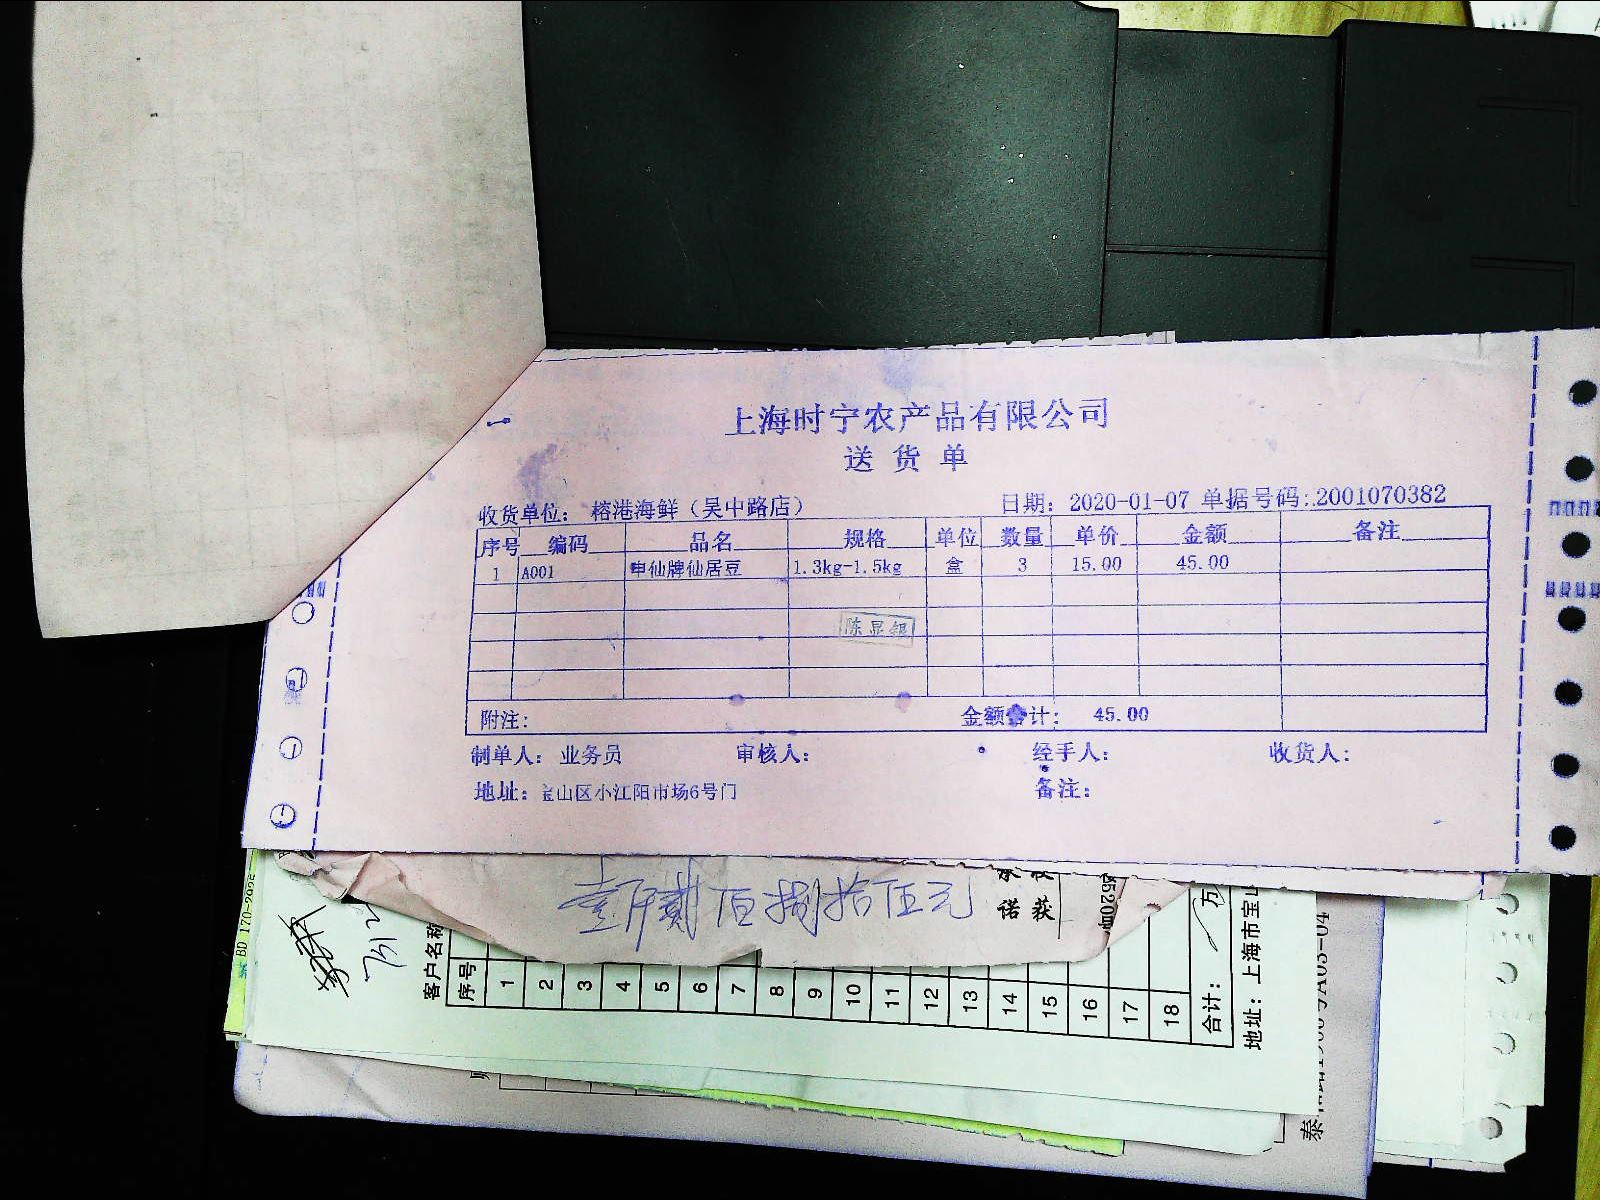 上海时宁农产品有限公司
送货单
收货单位： 榕港海鲜（吴中路店） 日期： 2020-01-07 单据号码：.2001070382
序号 编码 品名 规格 单位 数量 单价 金额 备注
1 A001 申仙牌仙居豆 1.3kg-1.5kg 盒 3 15.00 45.00
陈显银
附注： 金额合计： 45.00
制单人： 业务员 审核人： 经手人： 收货人：
地址： 宝山区小江阳市场6号门 备注：
壹仟贰佰捌拾伍元
承诺
获
5520
BD 170-2925
客户名称
序号 1 2 3 4 5 6 7 8 9 10 11 12 13 14 15 16 17 18
合计： 万
地址：上海市宝山
泰
A03-04